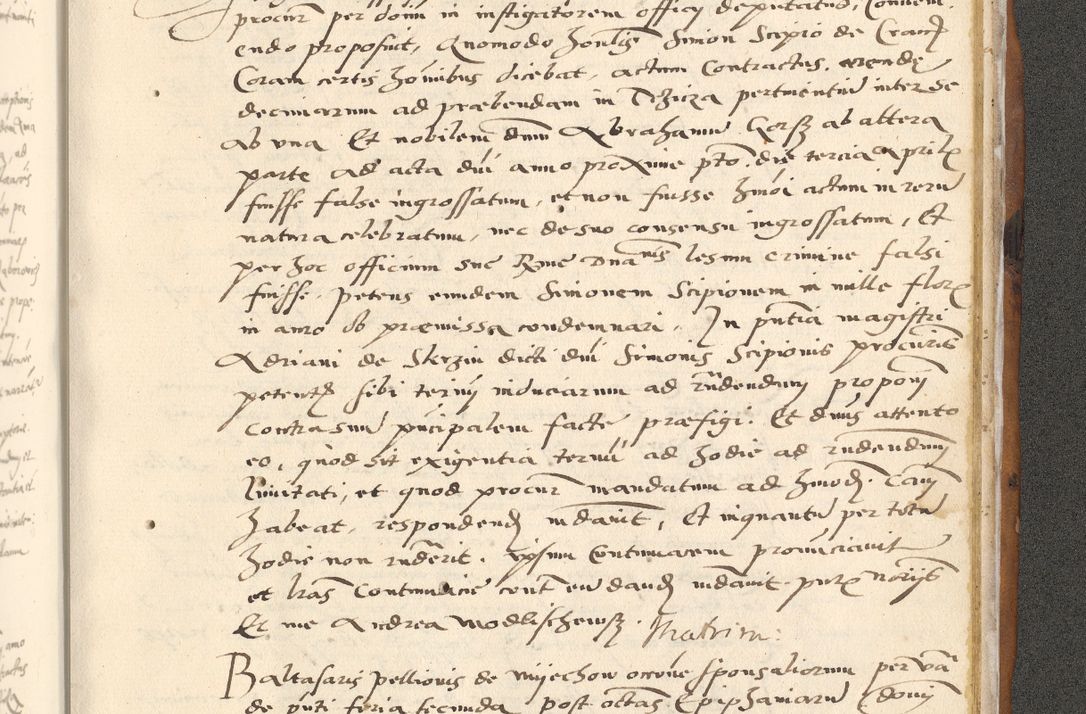 procur per dom in instigatorem officij deputatus, Conveni
endo proposuit, Quomodo honlis Simon Scipio de Crac
Coram certis hominibus dicebat, actum Contractus,
decimarum ad præbendam in pertinentiu inter se
ab una Et nobilem dnm Abrahamu ab altera
parte ad acta dni anno proxime pto die tercia aprilis
fuisse false ingrossatum, et non fuisse hmoi actum in reru
natura celebratum, nec de suo consensu ingrossatum, Et
per hoc officium sue Rme Dnãnis lesum crimine falsi
fuisse. petens eundem Simonem Scipionem in mille flor
in auro ob præmissa condemnari. In pntia magistri
Adriani de dicti dni Simonis Scipionis procuris
petentis sibi terminu induciarum ad rndendum proponi
Contra suu principalem facte præfigi. Et dnus attento
eo, quod sit exigentia termi ad hodie ad rndendum
limitati, et quod procur mandatum ad hmodi Cam
habeat, respondendi mdavit, Et inquantu per totu
hodie non rnderit, ipsum Contumacem pronuciavit
et lras Contumacie cont eu dandas mdavit pntibus noriis
Et me Andrea Modlischewsky. Matrim:
Baltasaris pellionis de mijechow occone sponsaliorum per va
de pnti feria secunda post octas Epiphaniaru Domi